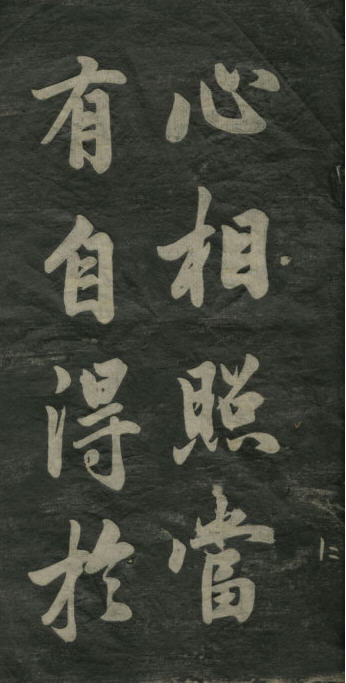 心相照當
有自得於